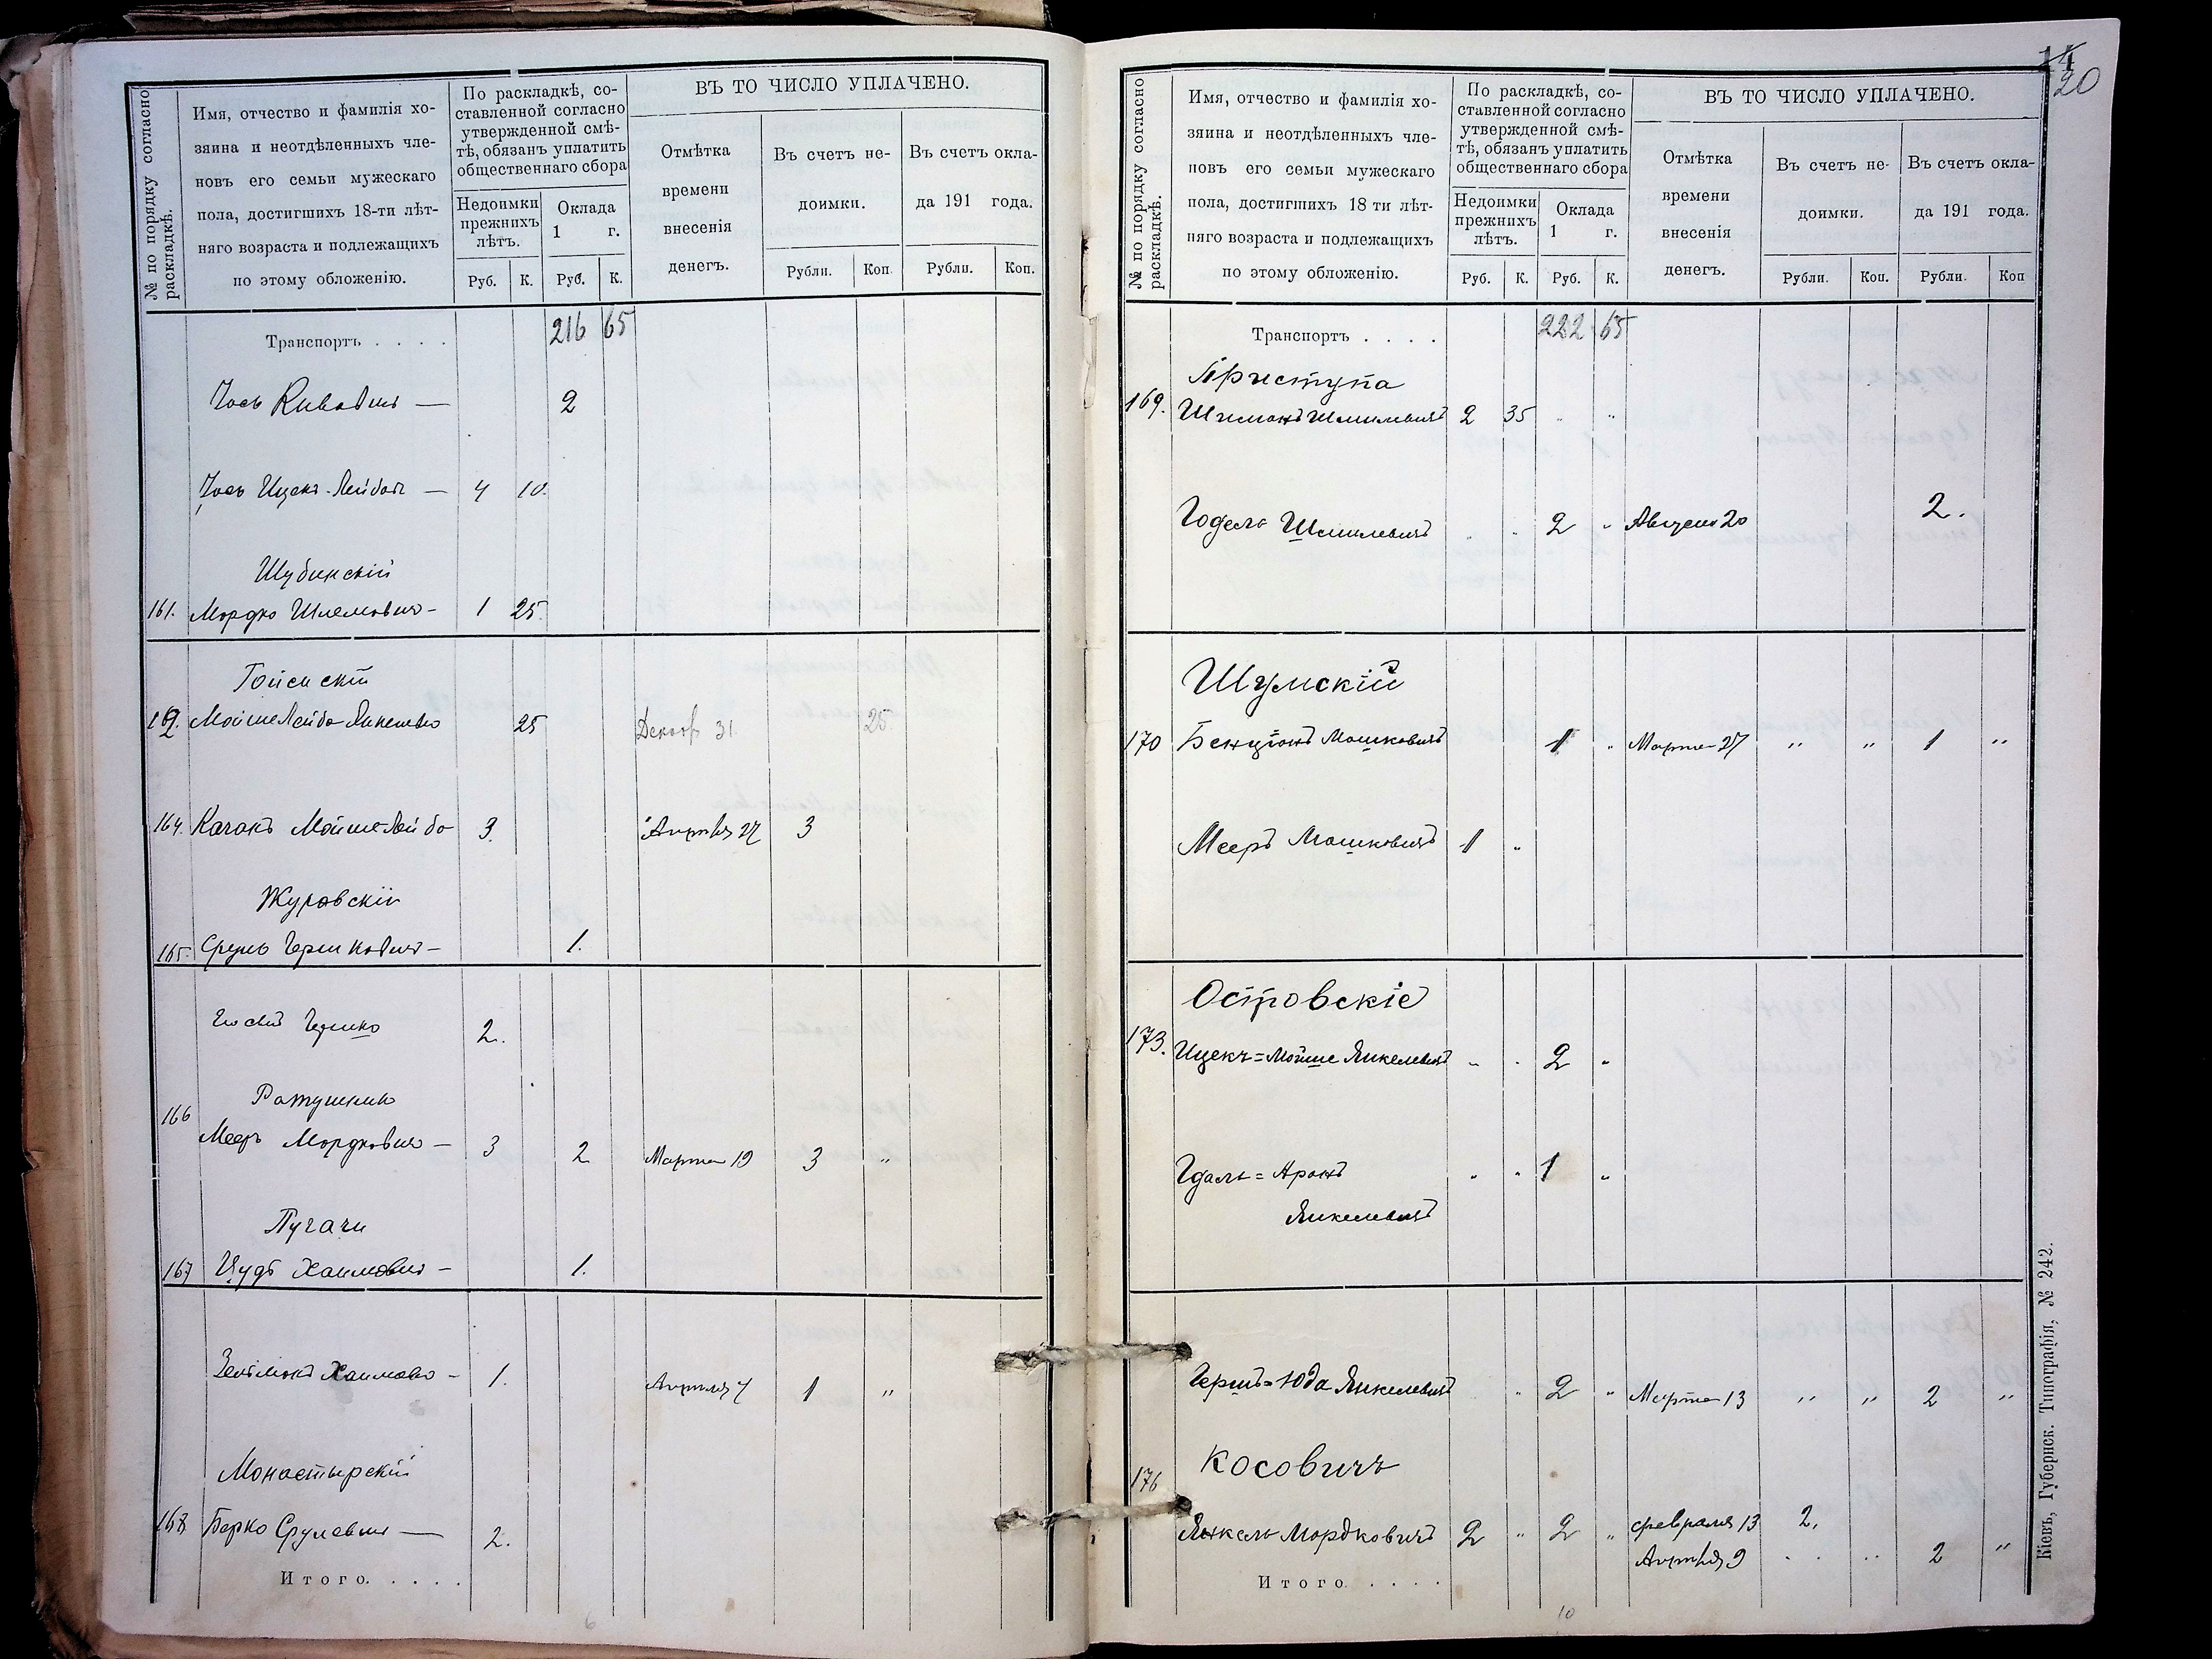 № по порядку согласно раскладкѣ.
Имя, отчество и фамилія хо-
зяина и неотдѣленныхъ чле-
новъ его семьи мужескаго
пола, достигшихъ 18-ти лѣт-
няго возраста и подлежащихъ
по этому обложенію.
По раскладкѣ, со-
ставленной согласно
утвержденной смѣ-
тѣ, обязанъ уплатить
общественнаго сбора
Недоимки
прежнихъ
лѣтъ.
Оклада
1 г.
Руб. К. Руб. К.
ВЪ ТО ЧИСЛО УПЛАЧЕНО.
Отмѣтка
времени
внесенія
денегъ.
Въ счетъ не-
доимки.
Въ счетъ окла-
да 191 года.
Рубли. Коп. Рубли. Коп.
Транспортъ . . . . 216 65
Іось 2
Іось Ицекъ-Лейбов — 4 10.
Шубинскій
161. Мордко Шлемович - 1 25.
Гойсинскій
162. Мойше Лейба Янкелев 25 Декабр 31 25
164. Качакъ Мойше Лейба 3. Апрѣля 27 3
Журовскій
165. Сруль Гершкович - 1.
Іосій Гершко 2.
Ратушный
166 Мееръ Мордкович - 3 2 Марта 19 3 "
Пугачи
167 Іудъ Хаимович - 1.
Зельманъ Хаимов - 1. Апрѣля 7 1 "
Монастырскій
168 Берко Срулевич — 2.
Итого. . . . .
14
20
№ по порядку согласно раскладкѣ.
Имя, отчество и фамилія хо-
зяина и неотдѣленныхъ чле-
новъ его семьи мужескаго
пола, достигшихъ 18 ти лѣт-
няго возраста и подлежащихъ
по этому обложенію.
По раскладкѣ, со-
ставленной согласно
утвержденной смѣ-
тѣ, обязанъ уплатить
общественнаго сбора
Недоимки
прежнихъ
лѣтъ.
Оклада
1 г.
Руб. К. Руб. К.
ВЪ ТО ЧИСЛО УПЛАЧЕНО.
Отмѣтка
времени
внесенія
денегъ.
Въ счетъ не-
доимки.
Въ счетъ окла-
да 191 года.
Рубли. Коп. Рубли. Коп
Транспортъ . . . . 222 65
Приступа
169. Шимонъ Шмилевичъ 2 35 " "
Годель Шмилевичъ " " 2 " Августа 20 2.
Шумскій
170 Бенціонъ Мошковичъ 1 " Марта 27 " " 1 "
Мееръ Мошковичъ 1 "
Островскіе
173. Ицекъ=Мойше Янкелевичъ " " 2 "
Гдаль=Аронъ " " 1 "
Янкелевичъ
Гершъ=Юда Янкелевичъ " 2 " Марта 13 " " 2 "
Косовичъ
176
Янкель Мордковичъ 2 " 2 " февраля 13 2.
Апрѣля 9 " " 2 "
Итого. . . . .
10
Кіевъ, Губернск. Типографія, № 242.